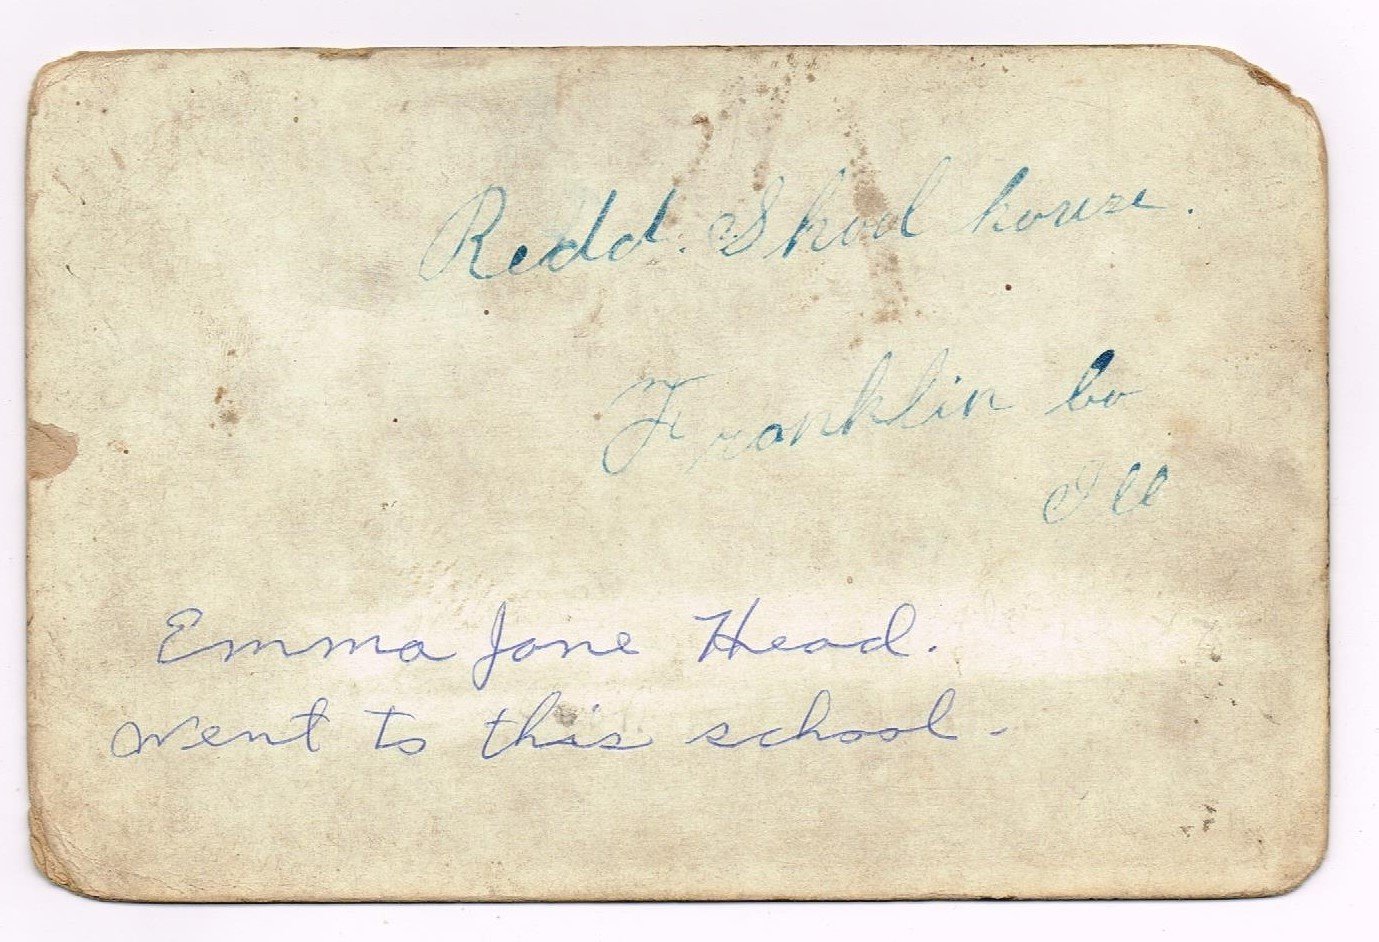 Redd. Shool house.
Franklin Co
Ill
Emma Jane Head.
went to this school.